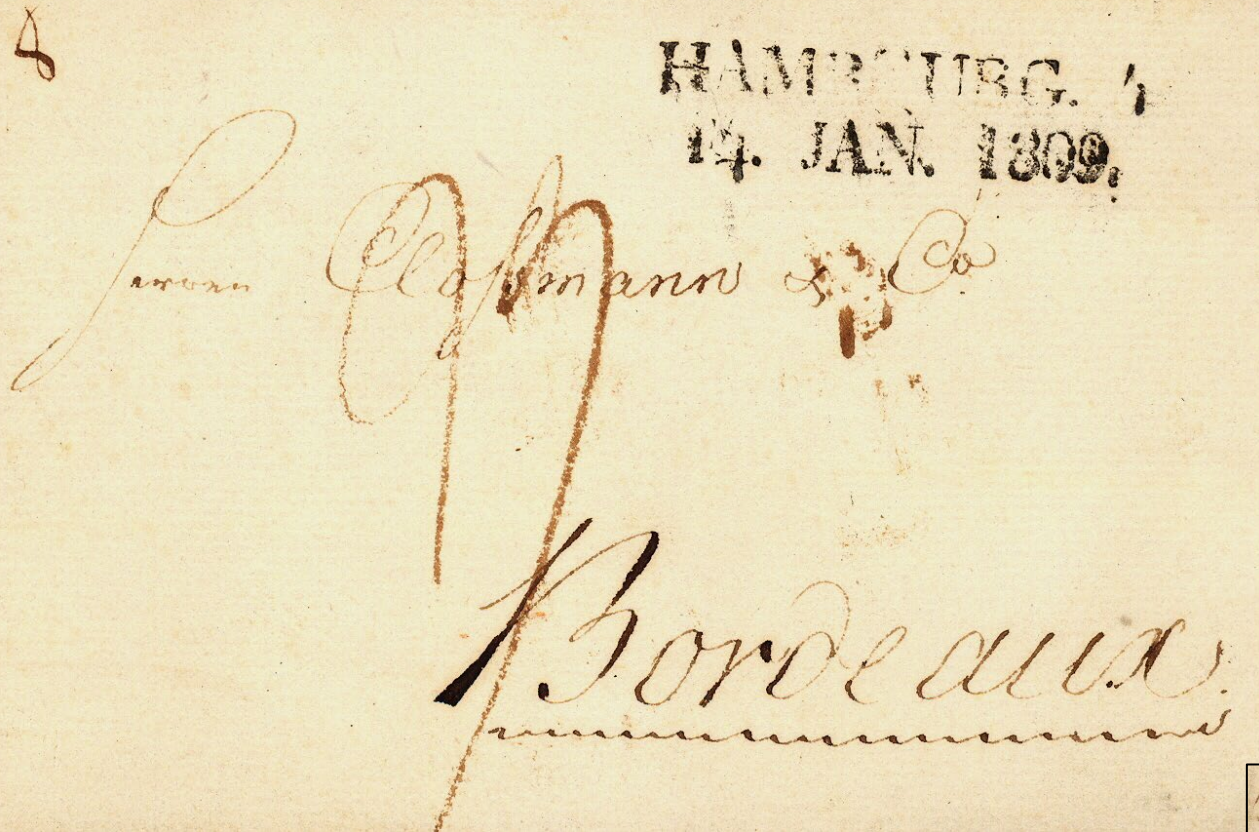 8
HAMBOURG. 4
14. JAN. 1809.
Herren Cloßmann & Co
Bordeaux.